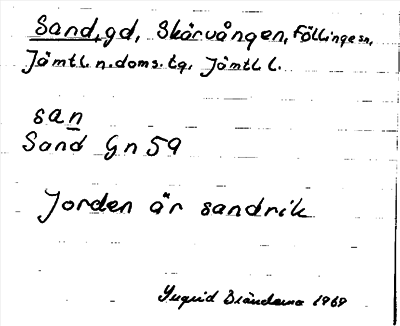 Sand, gd, Skärvången, Föllinge sn,
Jämtl. n. doms. tg, Jämtl. l.
san
Sand Gn 59
Jorden är sandrik
Ingrid 1969